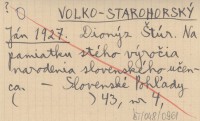 ?
VOLKO-STAROHORSKÝ
Ján 1927. Dionýz Štúr. Na
pamiatku stého výročia
narodenia slovenského učen-
ca. — Slovenské Pohľady
( ) 43, nr 4,